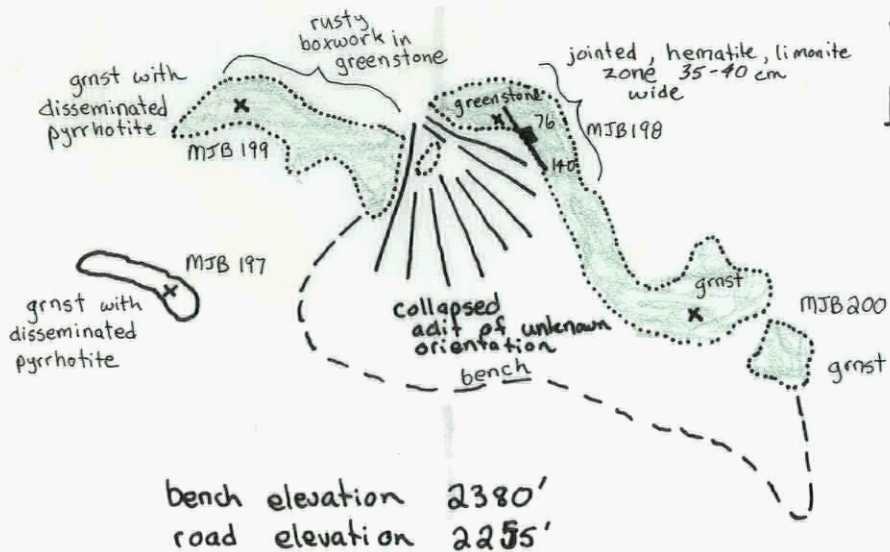 rusty
boxwork in
greenstone
grnst with
disseminated
pyrrhotite
MJB 199
jointed, hematite, limonite
zone 35-40 cm
wide
greenstone
76
140
MJB198
MJB 197
grnst with
disseminated
pyrrhotite
collapsed
adit of unknown
orientation
bench
grnst
MJB200
grnst
bench elevation 2380'
road elevation 2255'